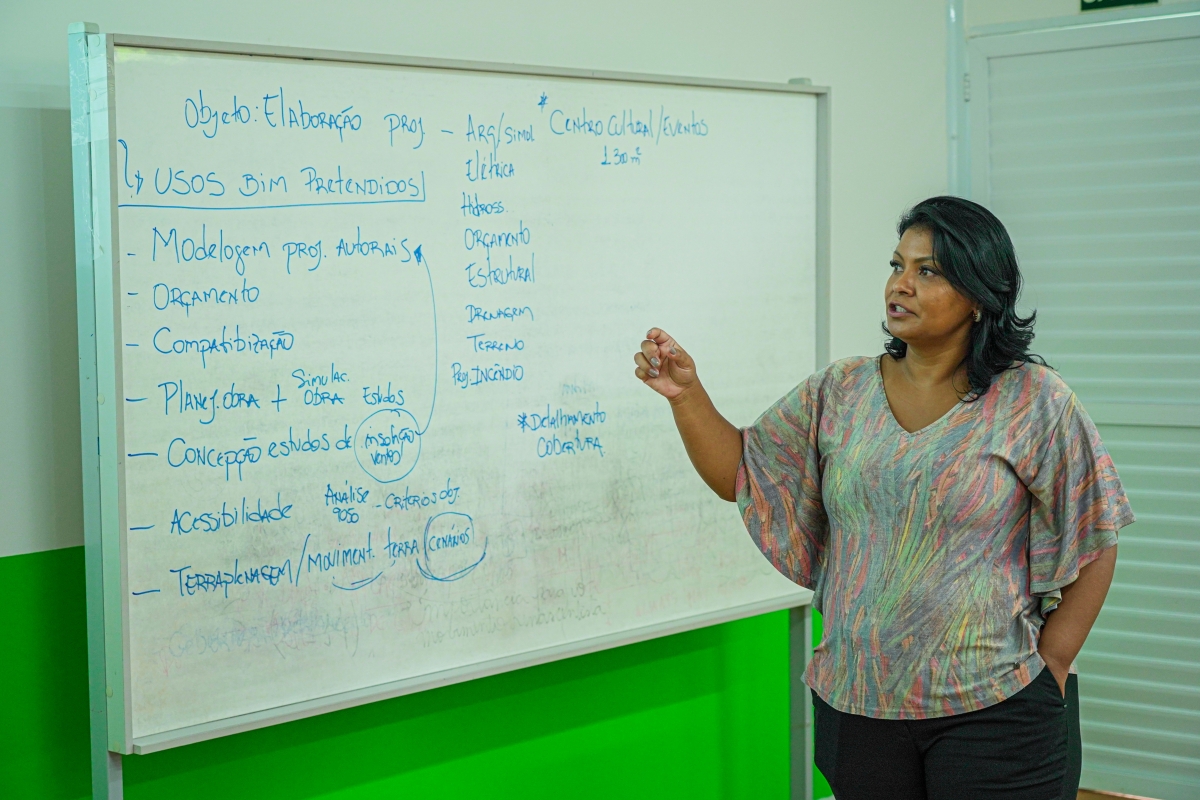 Objeto: Elaboração proj. - Arq/simol
Elétrica
Hidross.
Orçamento
Estrutural
Drenagem
Terreno
Proj. Incêndio
* Centro Cultural/Eventos
1.300 m²
* Detalhamento
Cobertura
Usos BIM Pretendidos
- Modelogem proj. autorais
- Orçamento
- Compatibização
- Planej. obra + Simulac. obra
Estudos
- Concepção estudos de insolção ventos
- Acessibilidade Análise 9050 - criterios obj.
- Terraplenagem/moviment. terra (cenários)